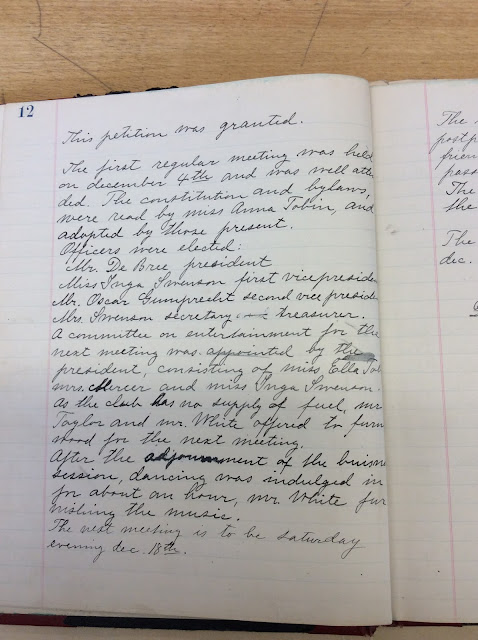 12
This petition was granted.
The first regular meeting was held
on december 4th and was well atten
ded. The constitution and bylaws,
were read by miss Anna Tobin, and
adopted by those present.
Officers were elected:
Mr. De Bree, president
Miss Inga Swenson first vicepreside
Mr. Oscar Gumprecht second vice preside
Mrs. Swenson secretary and treasurer.
A committee on entertainment for the
next meeting was appointed by the
president, consisting of miss Ella Tob
mrs. Mercer and miss Inga Swenson.
As the club has no supply of fuel, mr
Taylor and mr. White offered to furn
wood for the next meeting.
After the adjournment of the buisne
session, dancing was indulged in
for about an hour, mr. White fur
nishing the music.
The next meeting is to be saturday
evening dec. 18th.
The
postp
frien
pass
The
the
The
dec.